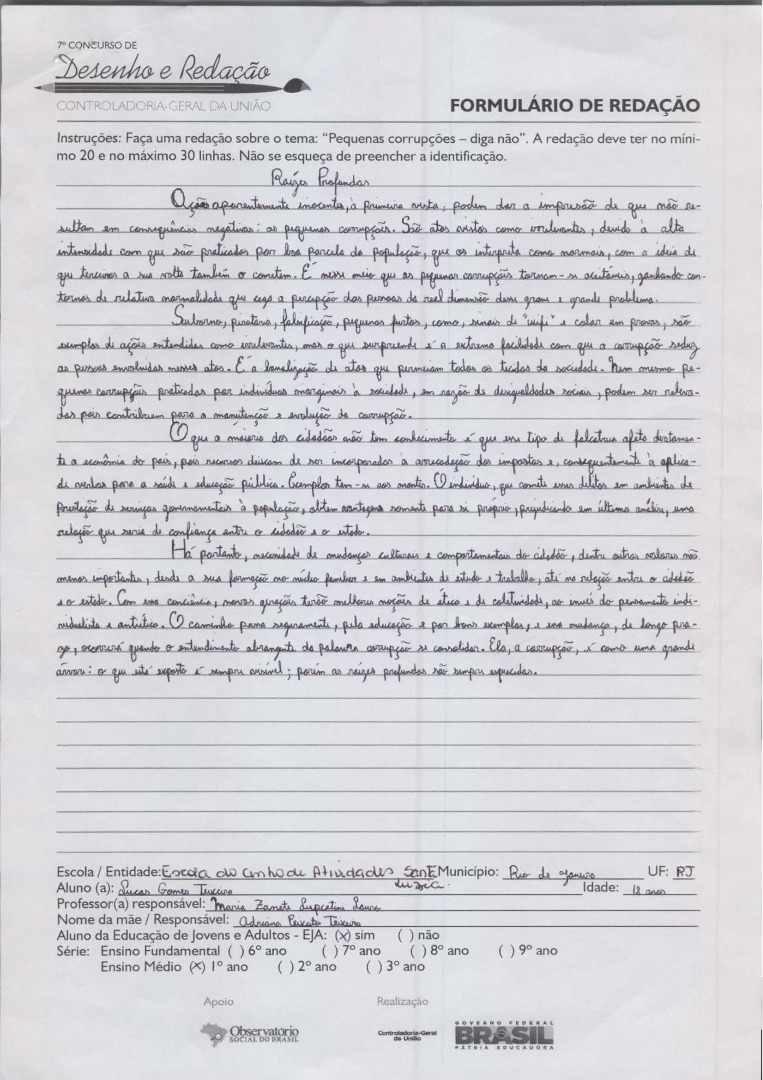 7º CONCURSO DE
Desenho e Redação
CONTROLADORIA-GERAL DA UNIÃO
FORMULÁRIO DE REDAÇÃO
Instruções: Faça uma redação sobre o tema: "Pequenas corrupções – diga não". A redação deve ter no míni-
mo 20 e no máximo 30 linhas. Não se esqueça de preencher a identificação.
Raízes Profundas
Ações aparentemente inocentes, à primeira vista, podem dar a impressão de que não re-
sultam em consequências negativas: as pequenas corrupções. São atos vistos como irrelevantes, devido à alta
intensidade com que são praticados por boa parcela da população, que os interpreta como normais, com a ideia de
que terceiros a sua volta também o cometem. É nesse meio que as pequenas corrupções tornam-se aceitáveis, ganhando con-
tornos de relativa normalidade que cega a percepção das pessoas da real dimensão desse grave e grande problema.
Suborno, pirataria, falsificação, pequenos furtos, como, sinais de "wifi" e colar em provas, são
exemplos de ações entendidas como irrelevantes, mas o que surpreende é a extrema facilidade com que a corrupção seduz
as pessoas envolvidas nesses atos. É a banalização de atos que permeiam todos os tecidos da sociedade. Nem mesmo pe-
quenas corrupções praticadas por indivíduos marginais à sociedade, em razão de desigualdades sociais, podem ser releva-
das pois contribuem para a manutenção e evolução da corrupção.
O que a maioria dos cidadãos não tem conhecimento é que esse tipo de falcatrua afeta diretamen-
te a econômia do país, pois recursos deixam de ser incorporados à arrecadação dos impostos e, consequentemente à aplica-
de verbas para a saúde e educação pública. Exemplos tem-se aos montes. O indivíduo, que comete esses delitos em ambientes de
prestação de serviços governamentais à população, obtem vantagens somente para si próprio, prejudicando em última análise, uma
relação que seria de confiança entre o cidadão e o estado.
Há portanto, necessidade de mudanças culturais e comportamentais do cidadão, dentre outros valores não
menos importantes, desde a sua formação no núcleo familiar e em ambientes de estudo e trabalho, até na relação entre o cidadão
e o estado. Com essa conciência, novas gerações terão melhores noções de ética e de coletividade, ao invés do pensamento indi-
vidualista e antiético. O caminho passa seguramente, pela educação e por bons exemplos, e essa mudança, de longo pra-
zo, ocorrerá quando o entendimento abrangente da palavra corrupção se consolidar. Ela, a corrupção, é como uma grande
árvore: o que está exposto é sempre visível; porém as raízes profundas são sempre esquecidas.
Escola / Entidade: Escola do cinho de Atividades SantE Município: Rio de Janeiro UF: RJ
Luzia.
Aluno (a): Lucas Gomes Teixeira Idade: 18 anos
Professor(a) responsável: Maria Zaneti
Nome da mãe / Responsável: Adriana Peixoto Teixeira
Aluno da Educação de Jovens e Adultos - EJA: (x) sim ( ) não
Série: Ensino Fundamental ( ) 6º ano ( ) 7º ano ( ) 8º ano ( ) 9º ano
Ensino Médio (x) 1º ano ( ) 2º ano ( ) 3º ano
Apoio Realização
Observatório
SOCIAL DO BRASIL
Controladoria-Geral
da União
GOVERNO FEDERAL
BRASIL
PÁTRIA EDUCADORA